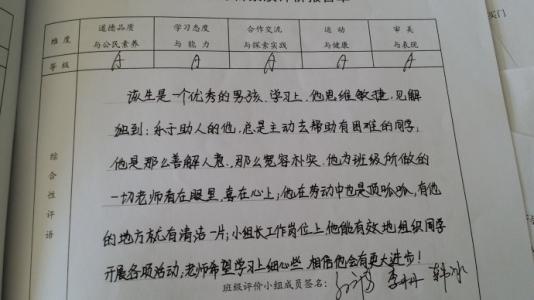 维度 道德品质与公民素养 学习态度与能力 合作交流与探索实践 运动与健康 审美与表现
等级 A A A A A
综合性评语
该生是一个优秀的男孩.学习上.他思维敏捷.见解
独到;乐于助人的他,总是主动去帮助有困难的同学;
他是那么善解人意.那么宽容朴实.他为班级所做的
一切老师看在眼里,喜在心上;他在劳动中也是顶呱呱,有他
的地方就有清洁一片;小组长工作岗位上他能有效地组织同学
开展各项活动;老师希望学习上细心些,相信他会有更大进步!
班级评价小组成员签名: